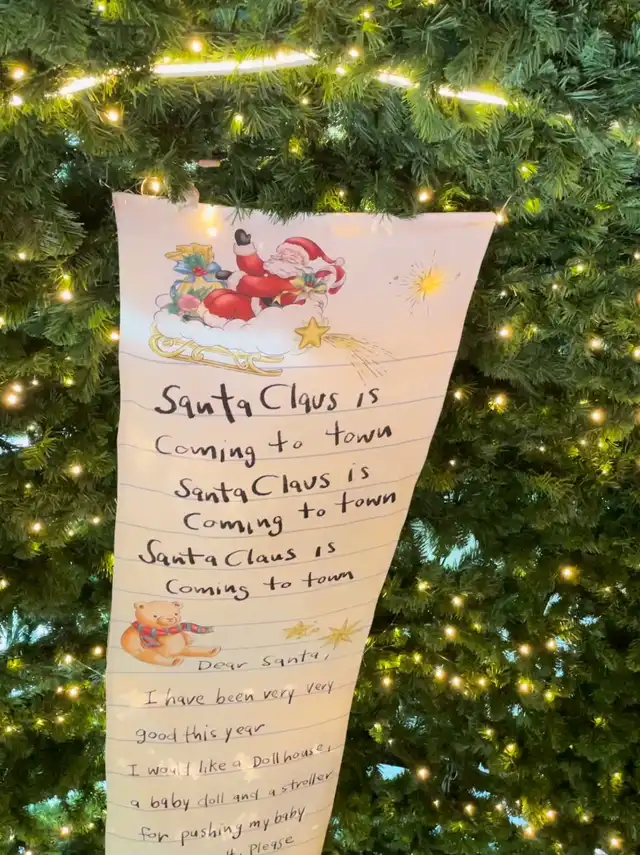 Santa Claus is
Coming to town
Santa Claus is
Coming to town
Santa Claus is
Coming to town
Dear Santa,
I have been very very
good this year
I would like a Dollhouse,
a baby doll and a stroller
for pushing my baby
Please